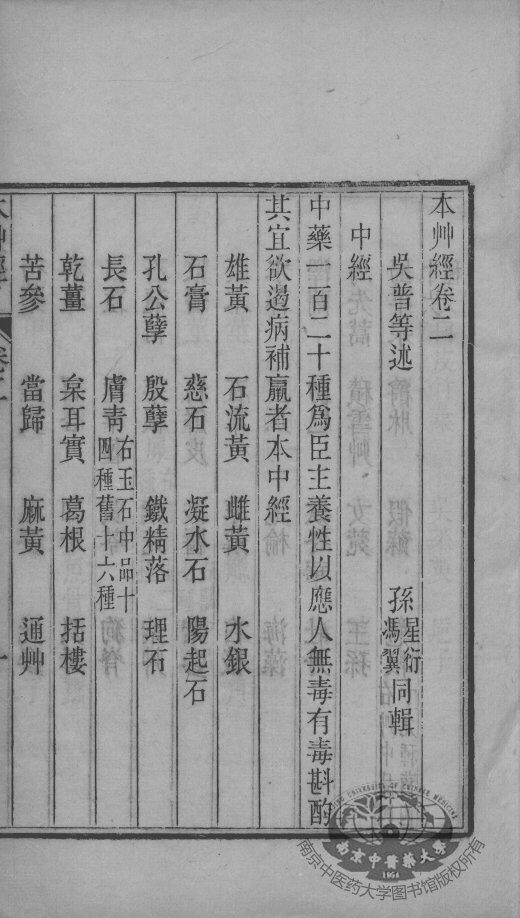 本艸經卷二
吳普等述　孫星衍馮翼同輯
中經
中藥一百二十種爲臣主養性以應人無毒有毒斟酌
其宜欲遏病補羸者本中經
雄黃　石流黃　雌黃　水銀
石膏　慈石　凝水石　陽起石
孔公孽　殷孽　鐵精落　理石
長石　膚青　右玉石中品十四種舊十六種
乾薑　枲耳實　葛根　括樓
苦參　當歸　麻黃　通艸
南京中醫藥大學
1954
南京中医药大学图书馆版权所有